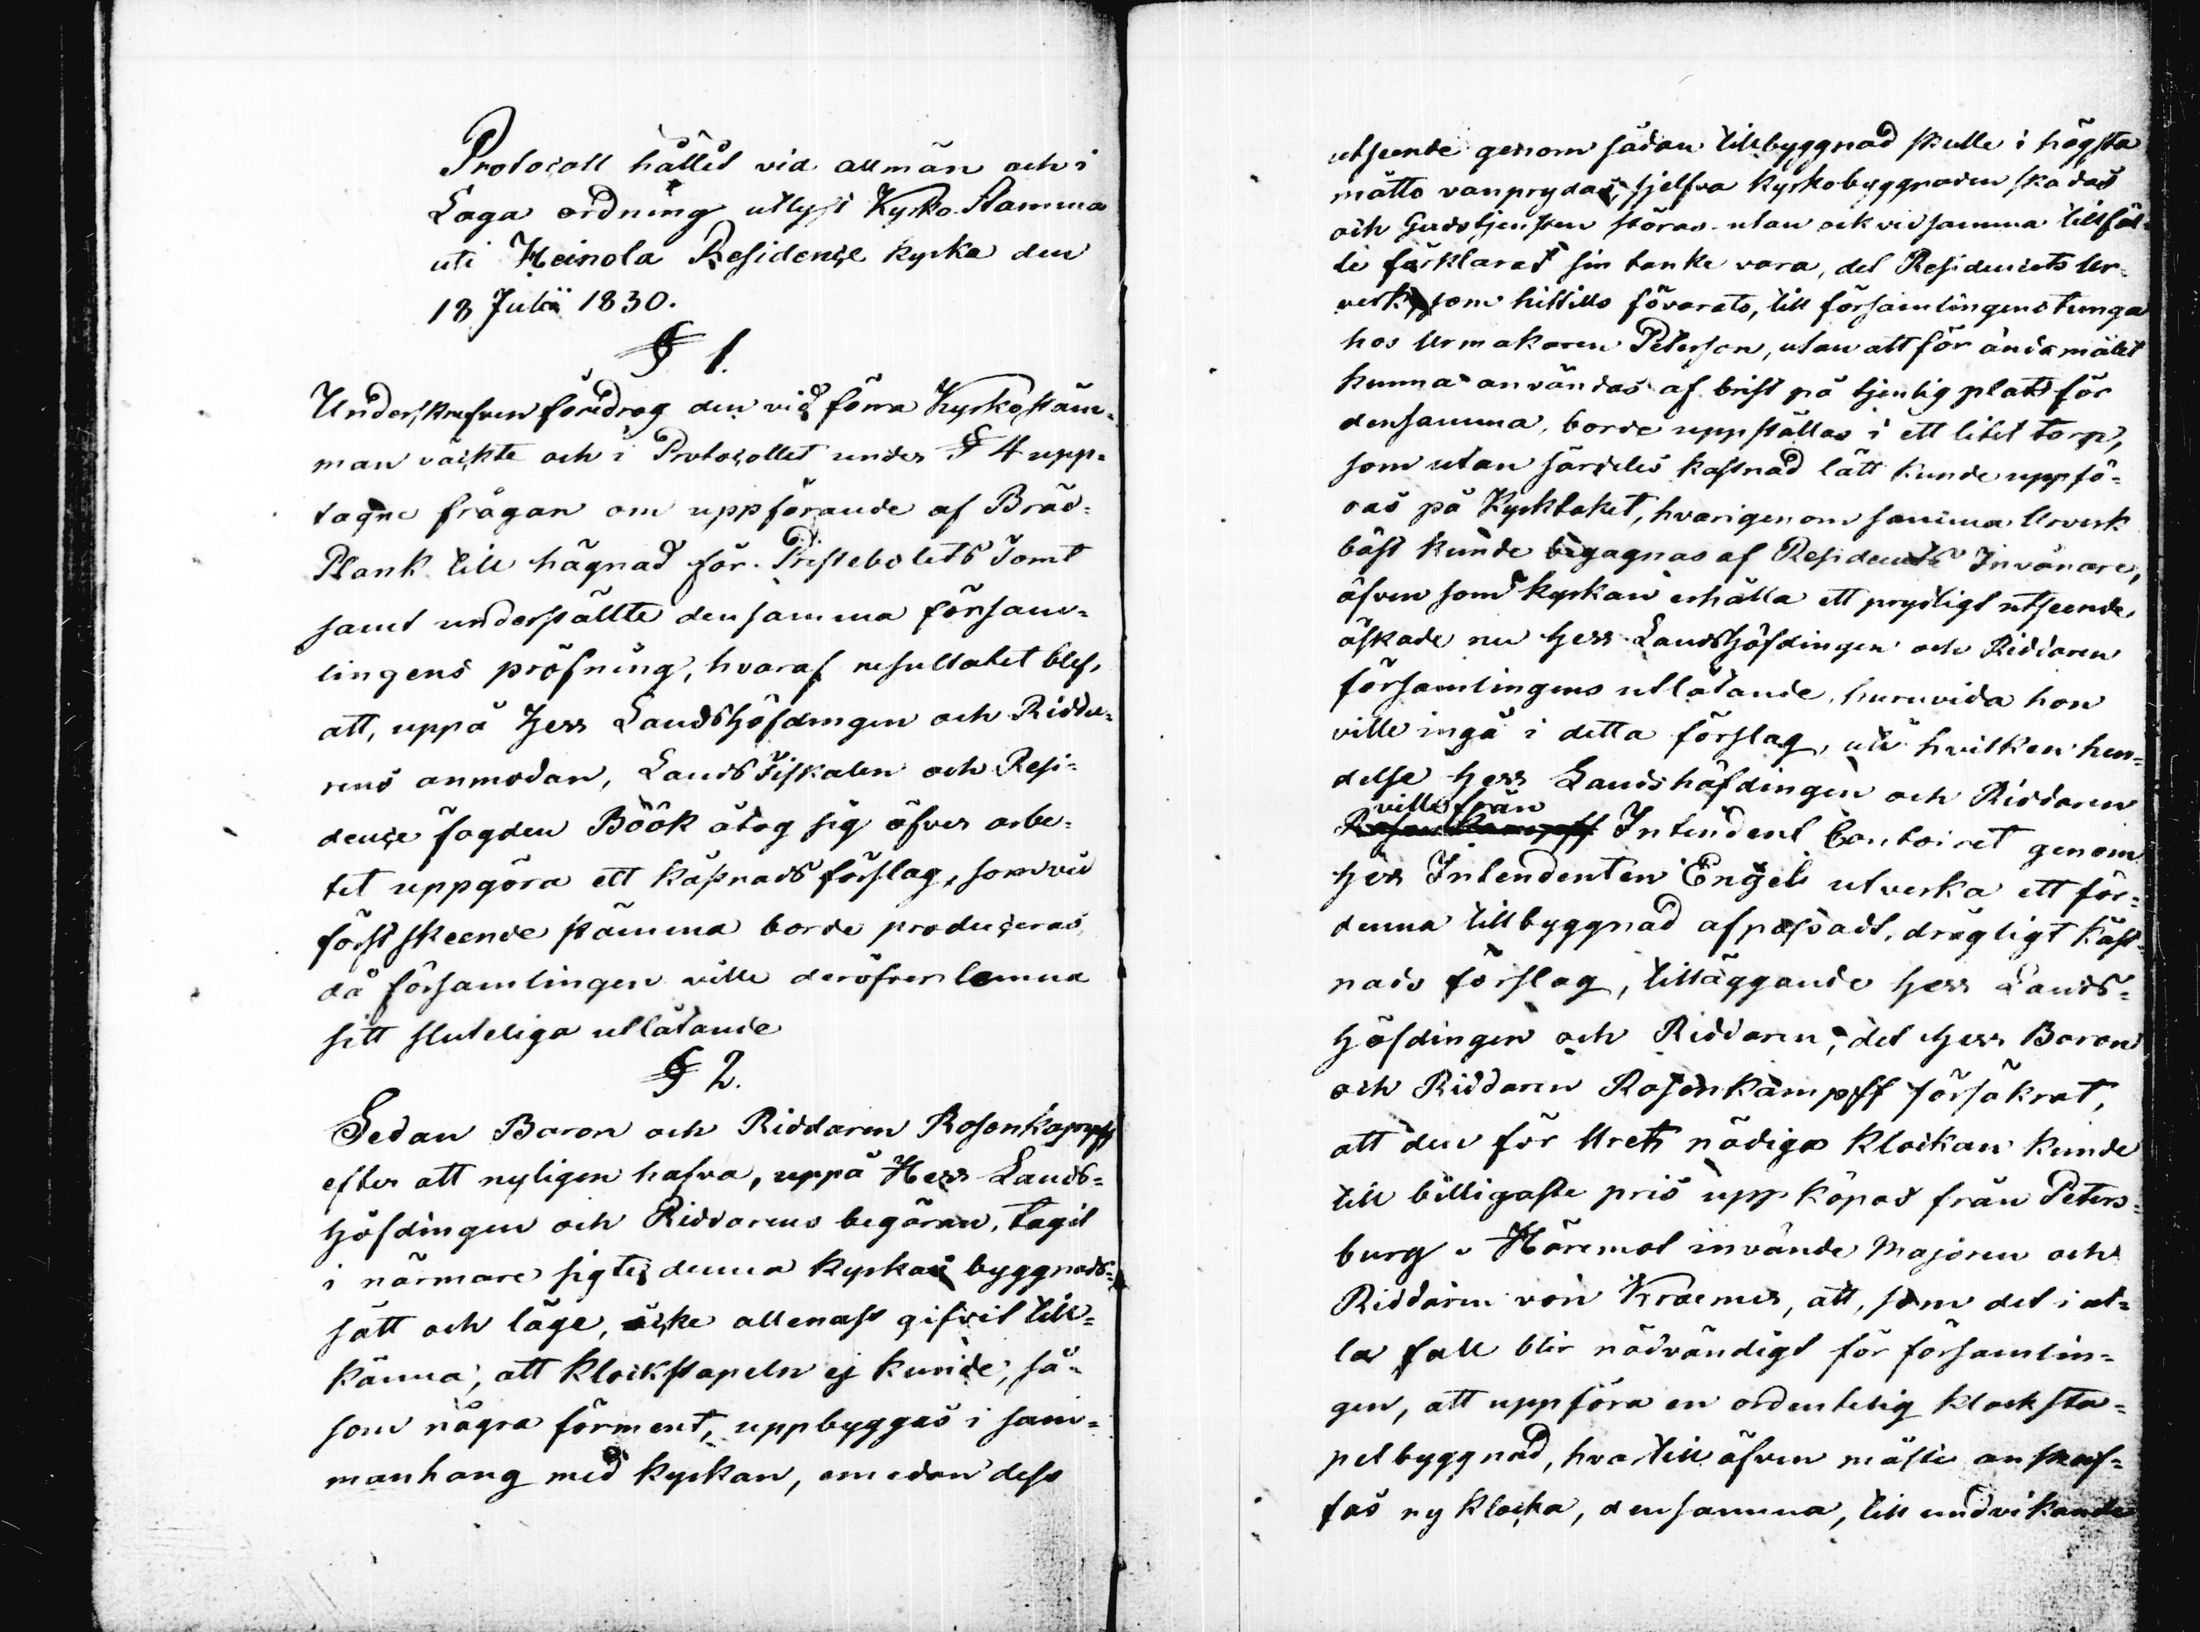 Protocoll hållet vid allmän och i
Laga ordning utlyst Kyrko-Stamma
uti Heinola Residence kyrka den
18 Julii 1830.
§ 1.
Underskrefven föredrog den vid förra Kyrkostäm-
man väckte och i Protocollet under § 4 upp-
tagne frågan om uppförande af Bräd-
Plank till hägnad för Prestebolets Tomt
samt underställte densamma försam-
lingens pröfning, hvaraf resultatet blef,
att, uppå Herr Landshöfdingen och Ridda-
rens anmodan, Landsfiskalen och Resi-
dence fogden Böök åtog sig öfver arbe-
tet uppgöra ett kåstnads förslag, som vid
först skeende stämma borde produceras,
då församlingen ville deröfver lemna
sitt sluteliga utlåtande
§ 2.
Sedan Baron och Riddaren Rosenkampff
efter att nyligen hafva, uppå Herr Lands-
höfdingen och Riddarens begäran, tagit
i närmare sigte denna kyrkas byggnads-
sätt och läge, icke allenast gifvit till-
känna, att klockstapeln ej kunde, så-
som några förment, uppbyggas i sam-
manhang med kyrkan, emedan dess
utseende genom sådan tillbyggnad skulle i högsta
måtto vanprydas, sjelfva kyrkobyggnaden skadas
och Gudstjensten störas utan ock vid samma tillfäl-
le förklarat sin tanke vara, det Residencets Ur-
verk, som hittills förvarats, till församlingens tunga
hos Urmakaren Peterson, utan att för ändamålet
kunna användas af brist på tjenlig plats för
densamma, borde uppställas i ett litet torn,
som utan särdeles kostnad lätt kunde uppfö-
ras på Kyrktaket, hvarigenom samma Urverk
bäst kunde begagnas af Residencets Invånare,
äfven som kyrkan erhålla ett prydligt utseende
äskade nu Herr Landshöfdingen och Riddaren
församlingens utlåtande, huruvida hon
ville ingå i detta förslag, uti hvilken hen-
delse Herr Landshöfdingen och Riddaren
ville från
Intendent Contoiret genom
Herr Intendenten Engel utverka ett för
denna tillbyggnad afpassadt, drägligt kåst-
nads förslag, tilläggande Herr Lands-
höfdingen och Riddaren, det Herr Baron
och Riddaren Rosenkampff försäkrat,
att den för Uret nödiga klockan kunde
till billigaste pris upp köpas från Peters-
burg. Häremot invände Majoren och
Riddaren von Kraemer, att, som det i al-
la fall blir nödvändigt för församlin-
gen, att uppföra en ordentelig klocksta-
pelbyggnad, hvartill äfven måste anskaf-
fas ny klocka, densamma, till undvikande